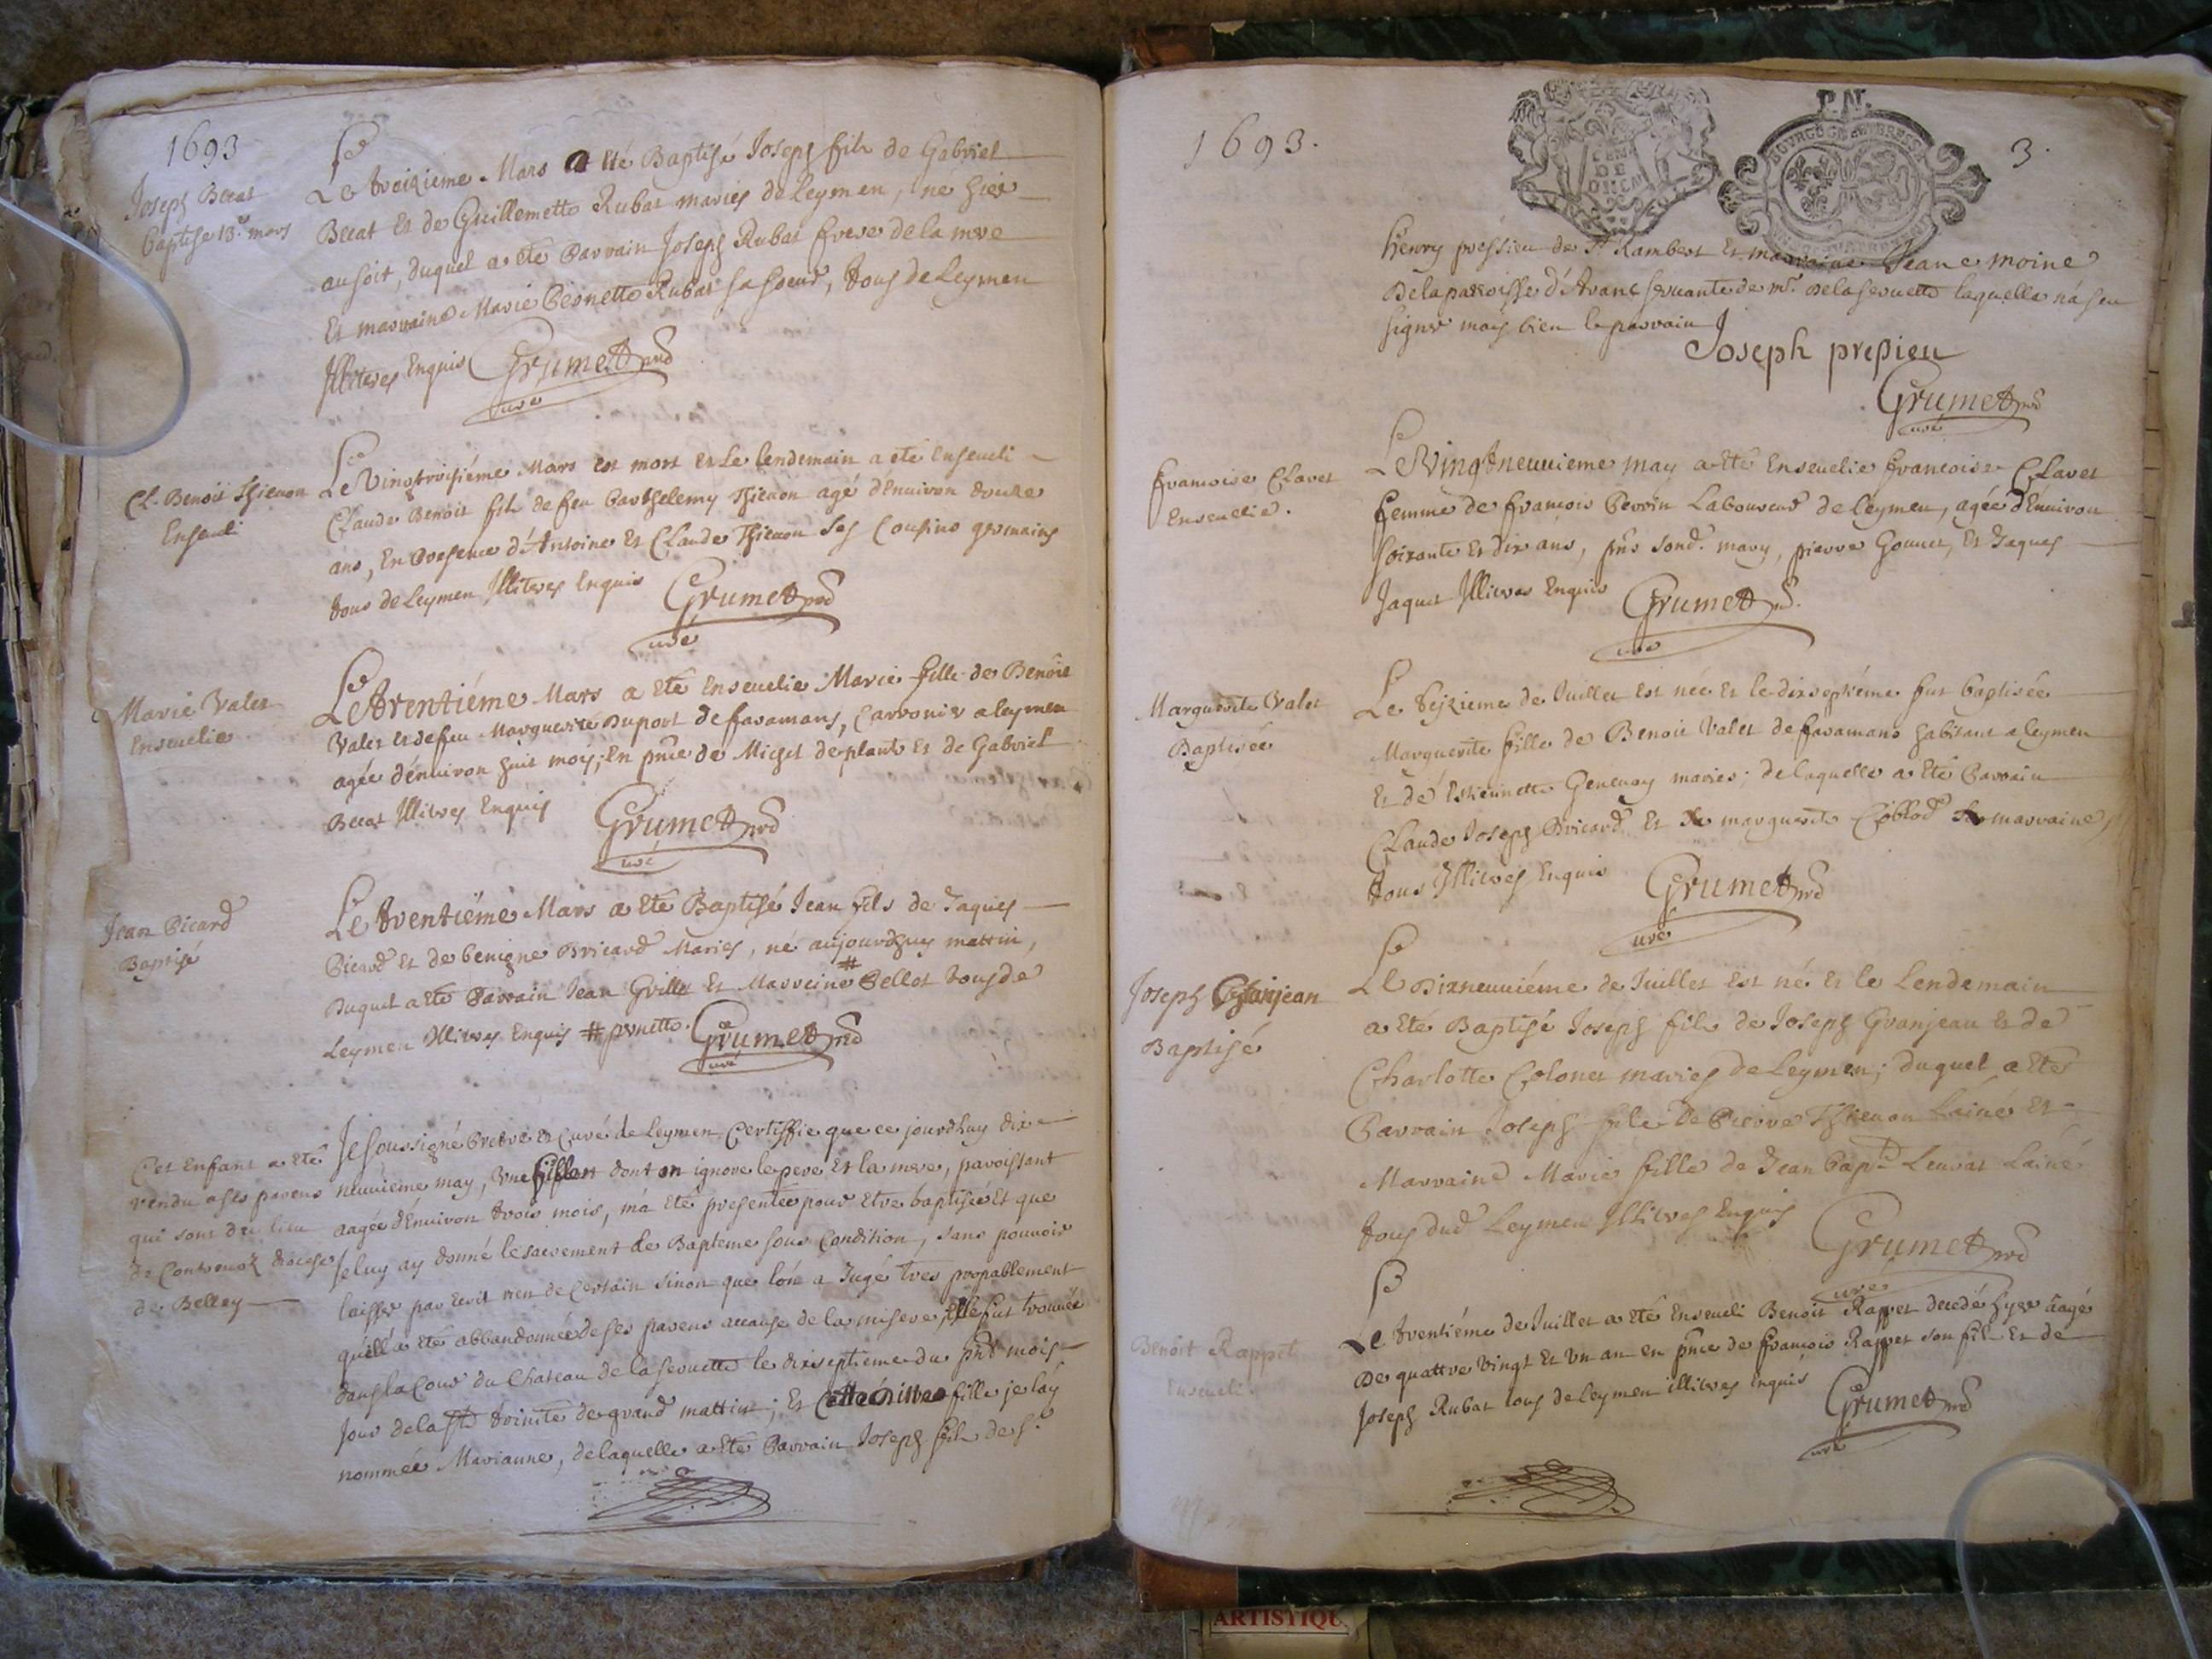 1693
Joseph Becat
baptisé 13e mars
Le treizieme Mars a eté Baptisé Joseph fils de Gabriel
Becat et de Guillemette Rubat mariés de Leymen, né hier
au soir, duquel a eté Parrain Joseph Rubat frere de la mere
Et marraine Marie Pernette Rubat sa soeur, tous de Leymen
Illiteres Enquis Grumet
curé
Cl. Benoit Thienon
Enseveli
Le Vingtroisiéme Mars est mort et Le lendemain a eté enseveli
Claude Benoit fils de feu Barthelemy Thienon agé d'Environ douze
ans, En Presence d'Antoine Et Claude Thienon ses Cousins germains
tous de Leymen Illiteres Enquis Grumet
curé
Marie Valet
Ensevelie
Le trentiéme Mars a eté Ensevelie Marie fille de Benoit
Valet et de feu Marguerite Duport de faramans, Carronier a leymen
agée d'environ huit moys, en pnce de Michel deplante Et de Gabriel
Becat Illitres Enquis Grumet
curé
Jean Picard
Baptisé
Le trentiéme Mars a Eté Baptisé Jean fils de Jaques
Picard et de benigne Bricard Mariés, né aujourdhuy mattin,
Duquel a eté Parrain Jean Grillet Et Marreine # Bellot tous de
Leymen Illitres Enquis # pernette. Grumet
curé
Cet Enfant a eté
rendu a ses parens
qui sont du lieu
de Contrevoz diocese
de Belley
Je soussigné Pretre Et Curé de Leymen Certiffie que ce jourdhuy dix
neuviéme may, Une fille dont on ignore le pere Et la mere, paroissant
aagée d'Environ trois mois, m'a Eté presentée pour Etre baptisée Et que
Je luy ay donné le sacrement de Bapteme sous Condition, sans pouvoir
laisser par Ecrit rien de Certain sinon que l'on a Jugé tres propablement
qu'ell'a Eté abbandonnée de ses parens accause de la misere, Elle fut trouvée
dans la Cour du Chateau de la servette le dixseptieme du pnt mois
Jour de la ste trinité de grand mattin; Et Cette fille je l'ay
nommée Marianne, de laquelle a eté Parrain Joseph fils de sr
1693.
P.N.
BOURGOGNE BRESSE
3.
Henry pressieu de St Rambert Et marraine Jeane moine
De la parroisse d'Avane servante de mr. De la servette laquelle n'a seu
signer mais bien le parrain
Joseph presieu
Grumet
curé
francoise Clavet
Ensevelie.
Le Vingtneuvieme may a eté Ensevelie francoise Clavet
femme de francois Perrin Laboureur de leymen, agée d'Environ
soixante Et dix ans, pns sond. mary, pierre Gonnet, Et Jaques
Jaquet Illitres Enquis Grumet
curé
Marguerite Valet
Baptisée
Le seizieme de Juillet est née Et le dixseptiéme fut baptisée
Marguerite fille de Benoit Valet de faramans habitant a leymen
Et de Estiennette Genevay mariés; de laquelle a Eté Parrain
Claude Joseph Bricard Et marguerite marraine
tous Illitres Enquis Grumet
curé
Joseph Granjean
Baptisé
Le Dixneuviéme de Juillet est né Et le Lendemain
a Eté Baptisé Joseph fils de Joseph Granjean Et de
Charlotte Colonet mariés de Leymen; duquel a Eté
Parrain Joseph fils de Pierre Thienon Lainé Et
Marraine Marie fille de Jean bapte Leurat Lainé
tous dud Leymen Illitres Enquis Grumet
curé
Benoit Rappet
Enseveli
Le trentiéme de Juillet a eté Enseveli Benoit Rappet decedé hyer âagé
De quattre Vingt Et Un an en pnce de francois Rappet son fils Et de
Joseph Rubat tous de Leymen illitres Enquis Grumet
curé
ARTISTIQU